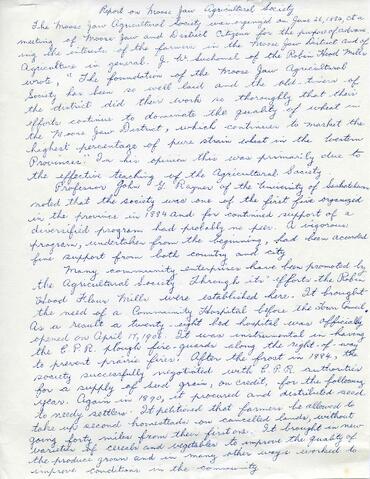 Report on Moose Jaw Agricultural Society
The Moose Jaw Agricultural Society was organized on June 26, 1884, at a
meeting of Moose Jaw and District Citizens for the purpose of advanc
ing the interests of the farmers in the Moose Jaw District and of
Agriculture in general. J. W. of the Robin Hood Mills
wrote, "The foundation of the Moose Jaw Agricultural
Society has been so well laid and the old-timers of
the district did their work so thoroughly that their
efforts continue to dominate the quality of wheat in
the Moose Jaw District, which continues to market the
highest percentage of pure strain wheat in the Western
Provinces." In his opinion this was primarily due to
the effective teaching of the Agricultural Society
Professor John G. Rayner of the University of Saskatchewan
noted that the society was one of the first five organized
in the province in 1884 and for continued support of a
diversified program had probably no peer. A vigorous
program, undertaken from the beginning, had been accorded
fine support from both country and city
Many community enterprises have been promoted by
the Agricultural Society Through its efforts the Robin
Hood Flour Mills were established here. It brought
the need of a Community Hospital before the Town Council.
As a result a twenty-eight bed hospital was officially
opened on April 17, It was instrumental in having
the C.P.R. plough fire-guards along the right-of-way
to prevent prairie fires. After the frost in 1884, the
society successfully negotiated with C.P.R. authorities
for a supply of seed grain, on credit, for the following
year. Again in 1890, it procured and distributed seed
to needy settlers. It petitioned that farmers be allowed to
take up second homesteads on cancelled lands, without
going forty miles from their first one. It brought in new
varieties of cereals and vegetables to improve the quality of
the produce grown and in many other ways worked to
improve conditions in the community